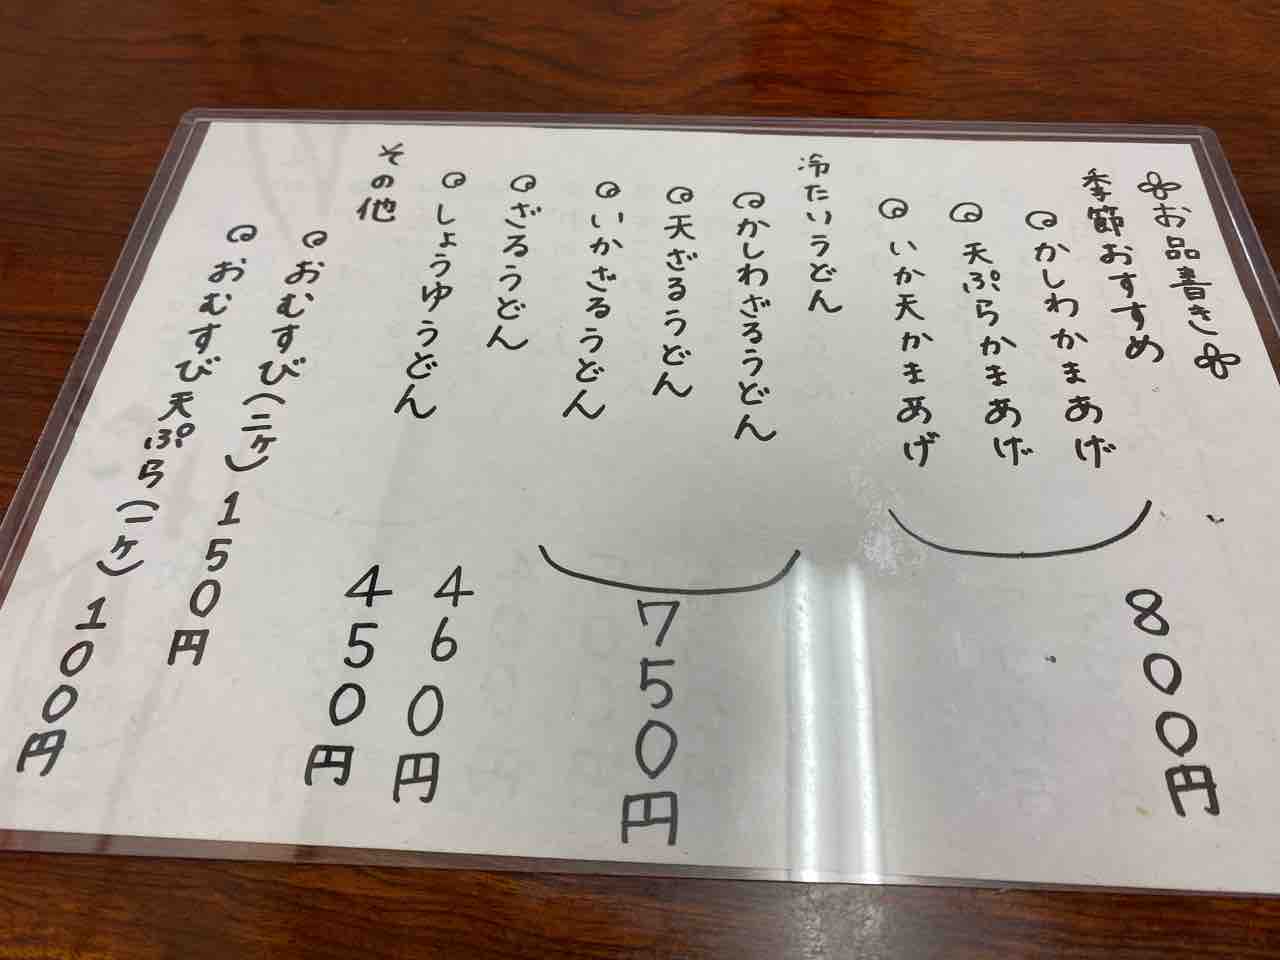 お品書き
季節おすすめ
かしわかまあげ
天ぷらかまあげ
いか天かまあげ
800円
冷たいうどん
かしわざるうどん
天ざるうどん
いかざるうどん
750円
ざるうどん 460円
しょうゆうどん 450円
その他
おむすび(二ヶ)150円
おむすび天ぷら(一ヶ)100円